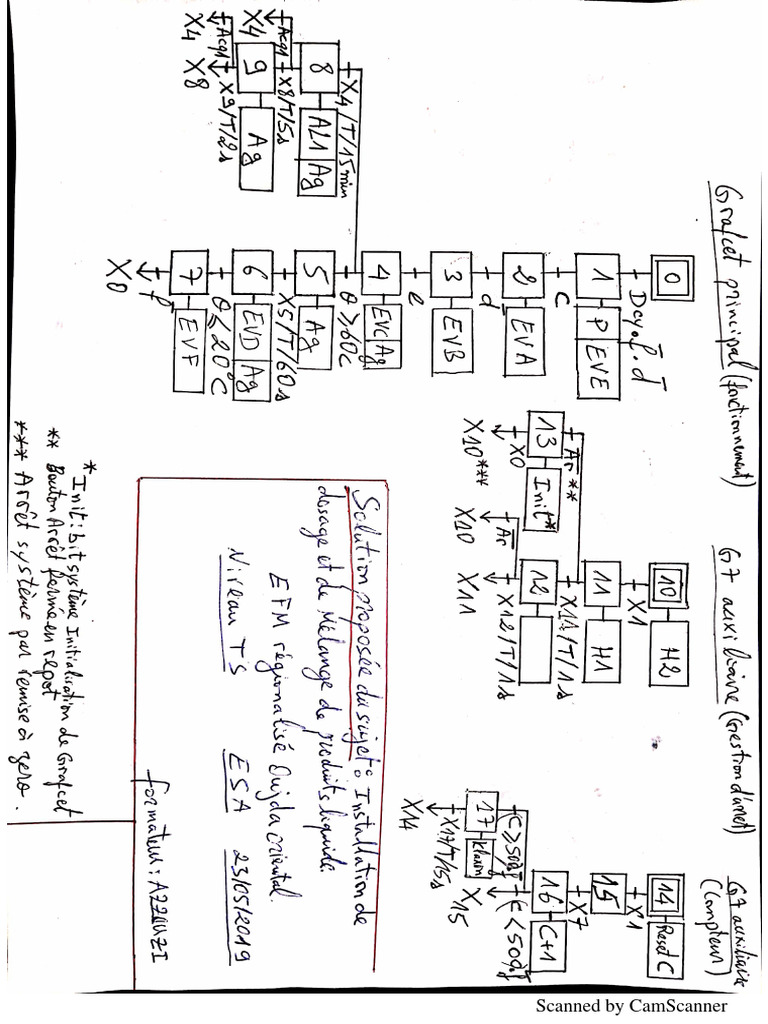 Grafcet principal (fonctionnement)
0
Dcy.f̅.d̅
1 P EVE
C
2 EVA
d
3 EVB
e
4 EVC Ag
θ ⩾ 60c
5 Ag
X5/T/60s
6 EVD Ag
θ ⩽ 20°C
7 EVF
f̅
X0
X4/T/15min
8 AL1 Ag
Acq1
X4
X8/T/5s
9 Ag
Acq1
X4
X9/T/2s
X8
G7 auxiliaire (Gestion d'arrêt)
10 H2
X1
11 H1
Ar**
X11/T/1s
13 Init*
X0
X10***
12
Ar
X10
X12/T/1s
X11
G7 auxiliaire
(Compteur)
14 Reset C
X1
15
X7
16 C+1
(C⩾500)
(C<500)
X15
17 klaxon
X17/T/15s
X14
Solution proposée du sujet : Installation de
dosage et de Mélange de produits liquide.
EFM régionalisé Oujda oriental.
Niveau TS ESA 23/05/2019
formateur : AZZOUZI
* Init : bit système Initialisation de Grafcet
** Bouton Arrêt fermé en repot
*** Arrêt système par remise à zero.
Scanned by CamScanner